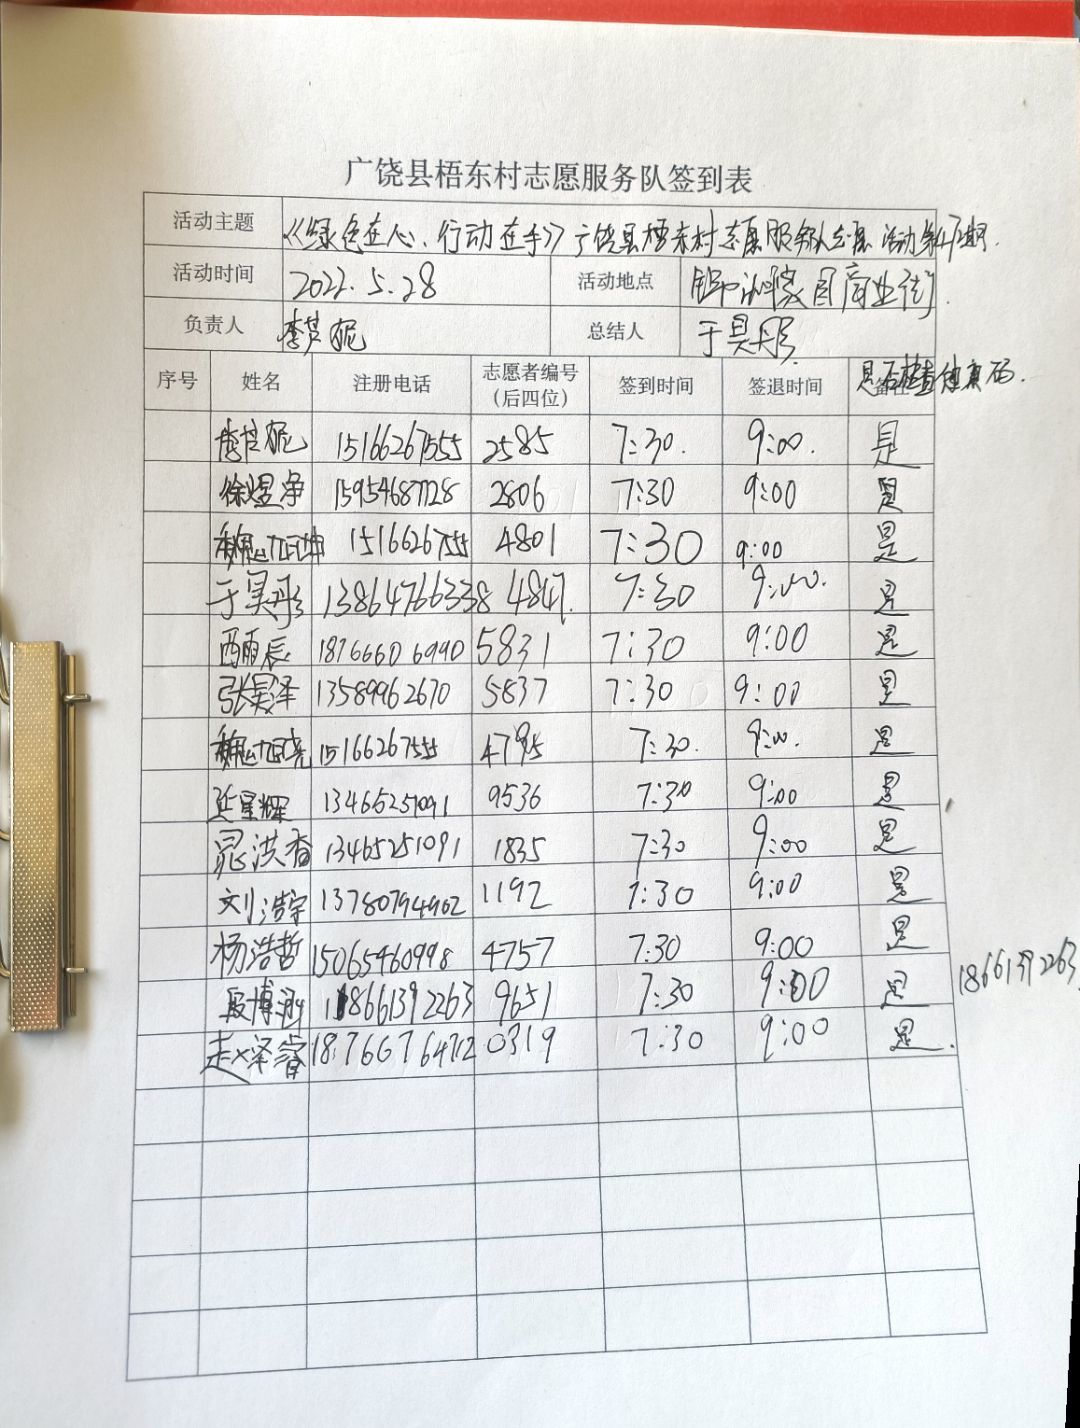 广饶县梧东村志愿服务队签到表
活动主题 《绿色在心、行动在手》广饶县梧东村志愿服务队志愿活动第47期
活动时间 2022.5.28 活动地点 家园商业街
负责人 总结人 于昊彤
序号 姓名 注册电话 志愿者编号(后四位) 签到时间 签退时间 是否检查健康码.
15166267555 2585 7:30. 9:00. 是
徐煜净 15954687728 2806 7:30 9:00 是
15166267555 4801 7:30 9:00 是
于昊彤 13864766338 4847. 7:30 9:00. 是
雨辰 18766606990 5831 7:30 9:00 是
张昊泽 13589962670 5837 7:30 9:00 是
15166267555 4795 7:30. 9:00. 是
星辉 13465251091 9536 7:30 9:00 是
晁洪香 13465251091 1835 7:30 9:00 是
刘浩宇 13780794962 1192 7:30 9:00 是
杨浩哲 15065460998 4757 7:30 9:00 是
段博 18661392263 9651 7:30 9:00 是 18661392263
赵泽睿 18766764712 0319 7:30 9:00 是.